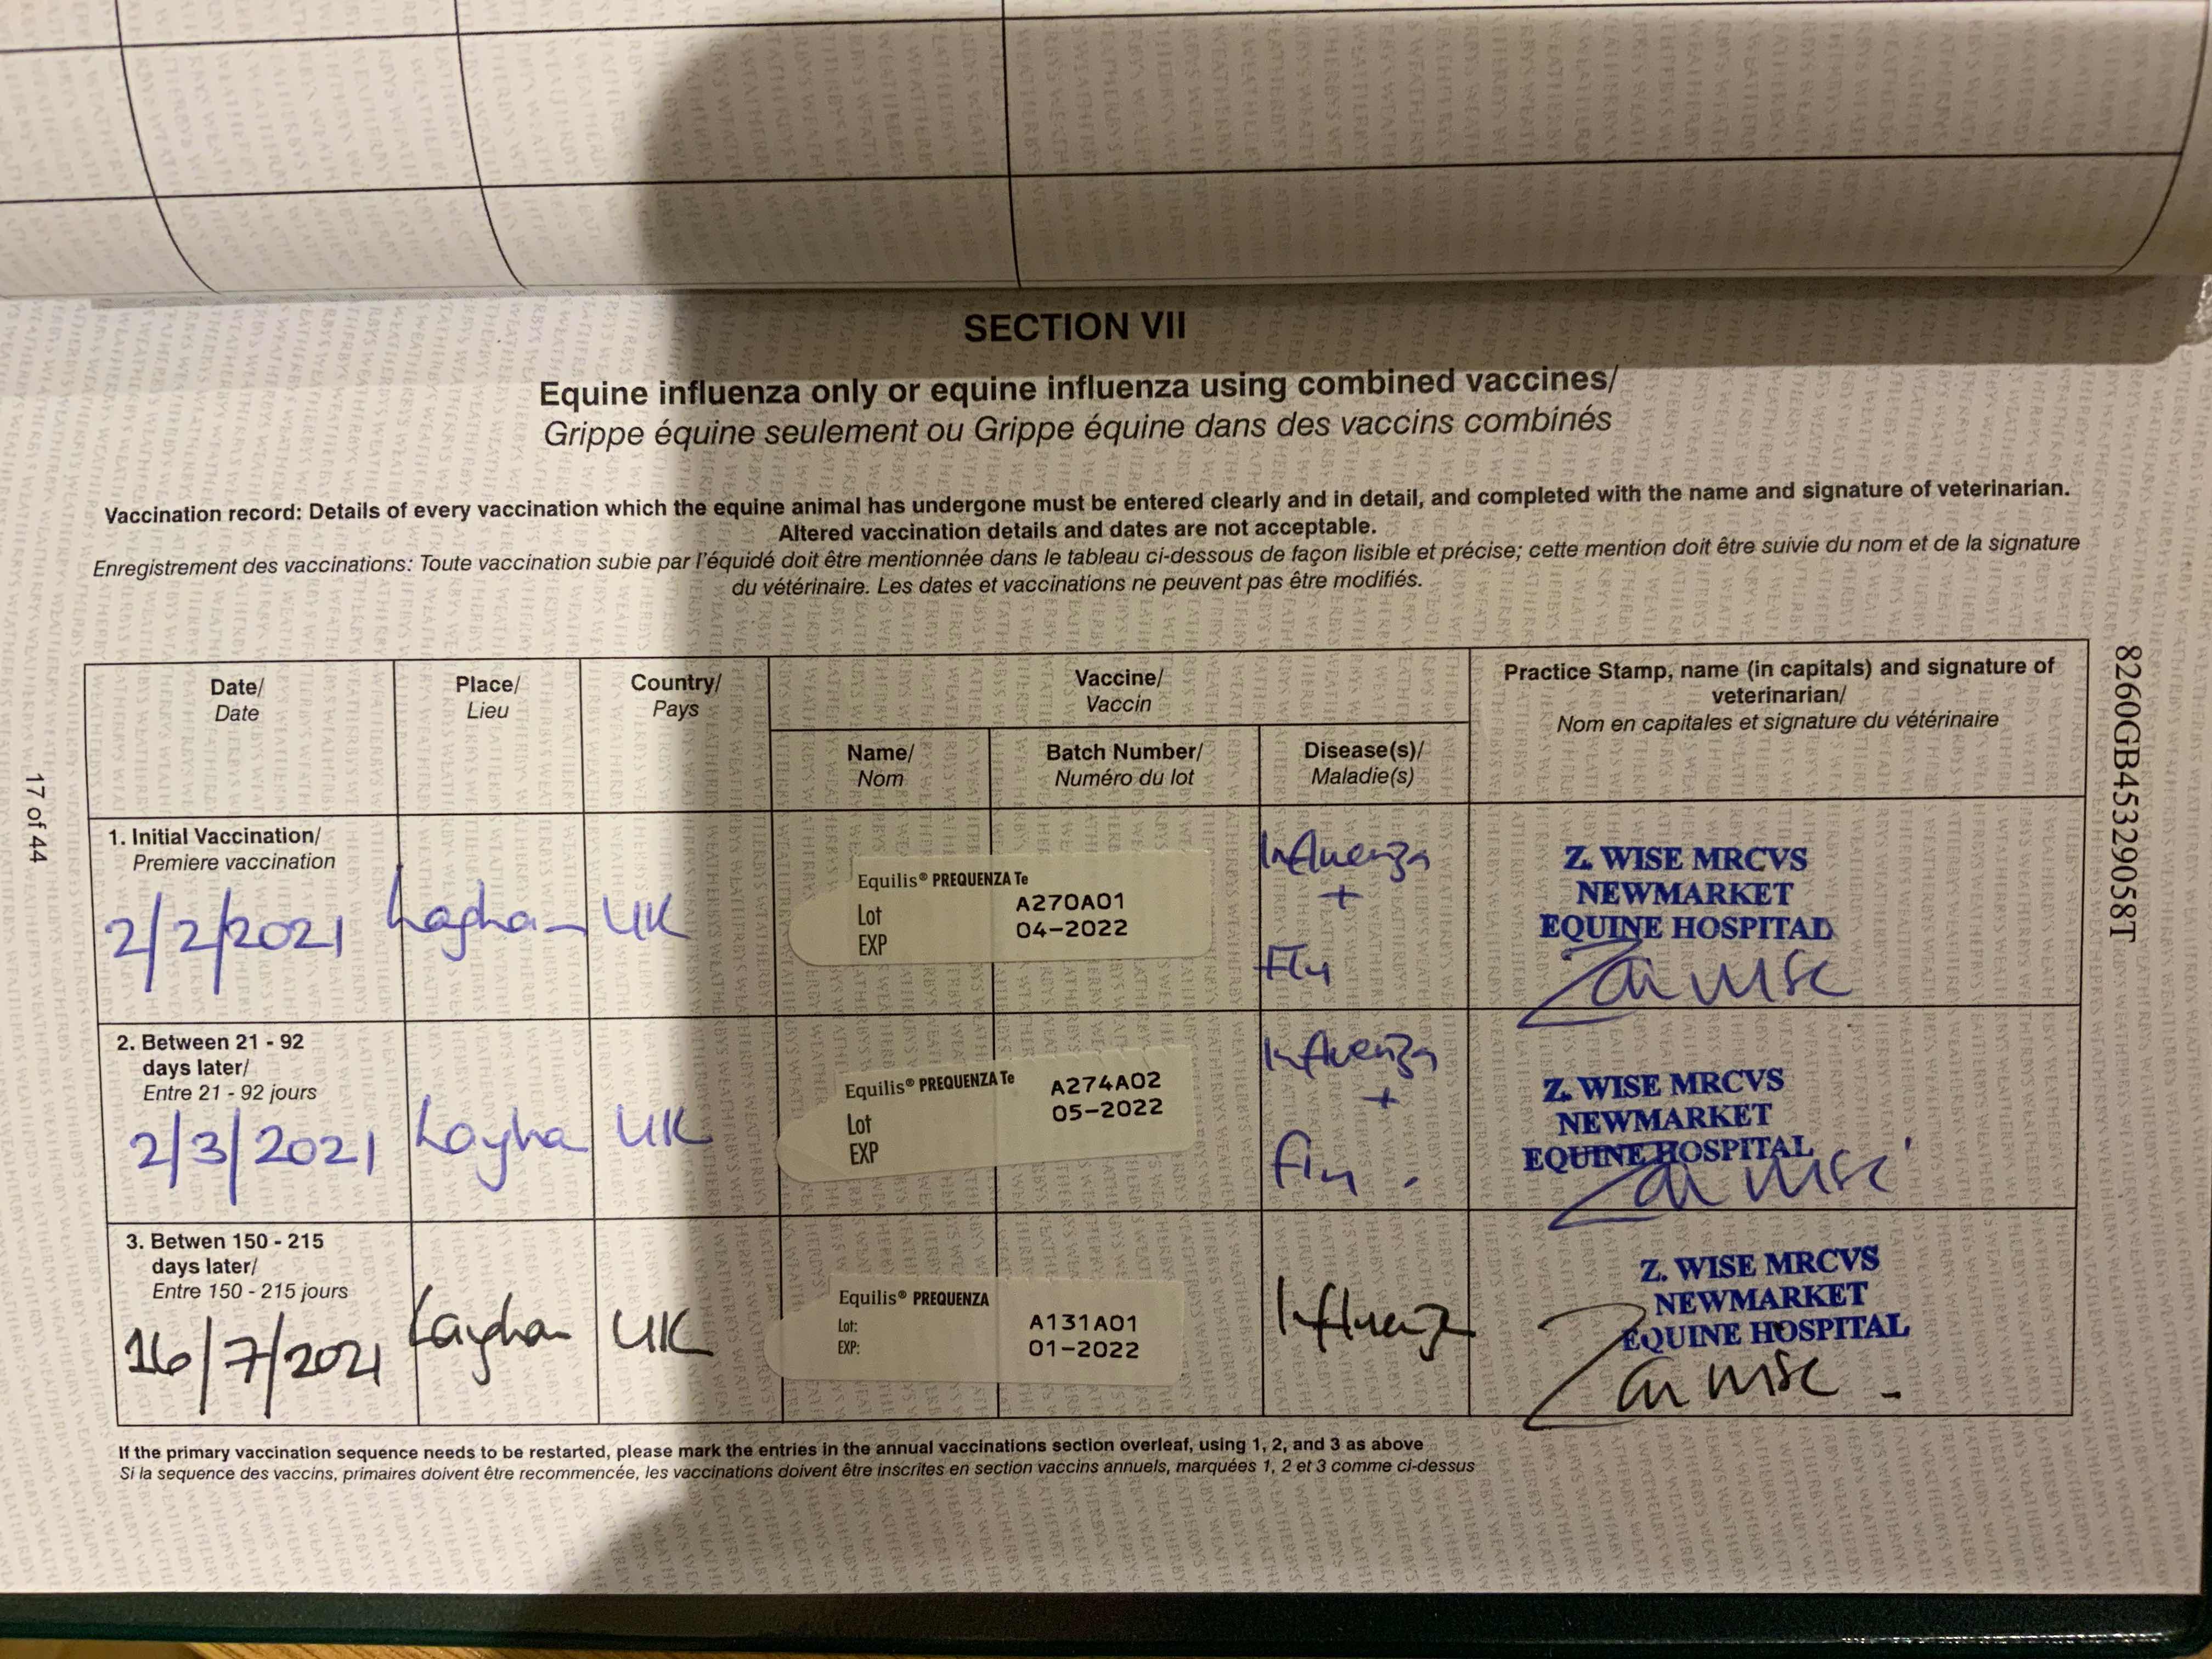 SECTION VII
Equine influenza only or equine influenza using combined vaccines/
Grippe équine seulement ou Grippe équine dans des vaccins combinés
Vaccination record: Details of every vaccination which the equine animal has undergone must be entered clearly and in detail, and completed with the name and signature of veterinarian.
Altered vaccination details and dates are not acceptable.
Enregistrement des vaccinations: Toute vaccination subie par l'équidé doit être mentionnée dans le tableau ci-dessous de façon lisible et précise; cette mention doit être suivie du nom et de la signature
du vétérinaire. Les dates et vaccinations ne peuvent pas être modifiés.
Date/
Date
Place/
Lieu
Country/
Pays
Vaccine/
Vaccin
Name/
Nom
Batch Number/
Numéro du lot
Disease(s)/
Maladie(s)
Practice Stamp, name (in capitals) and signature of
veterinarian/
Nom en capitales et signature du vétérinaire
1. Initial Vaccination/
Premiere vaccination
2/2/2021
UK
Equilis® PREQUENZA Te
Lot A270A01
EXP 04-2022
Influenza
+
Z. WISE MRCVS
NEWMARKET
EQUINE HOSPITAL
2. Between 21 - 92
days later/
Entre 21 - 92 jours
2/3/2021
UK
Equilis® PREQUENZA Te
Lot A274A02
EXP 05-2022
Influenza
+
Z. WISE MRCVS
NEWMARKET
EQUINE HOSPITAL
3. Betwen 150 - 215
days later/
Entre 150 - 215 jours
16/7/2021
UK
Equilis® PREQUENZA
Lot: A131A01
EXP: 01-2022
Influenza
Z. WISE MRCVS
NEWMARKET
EQUINE HOSPITAL
If the primary vaccination sequence needs to be restarted, please mark the entries in the annual vaccinations section overleaf, using 1, 2, and 3 as above
Si la sequence des vaccins, primaires doivent être recommencée, les vaccinations doivent être inscrites en section vaccins annuels, marquées 1, 2 et 3 comme ci-dessus
17 of 44
8260GB45329058T